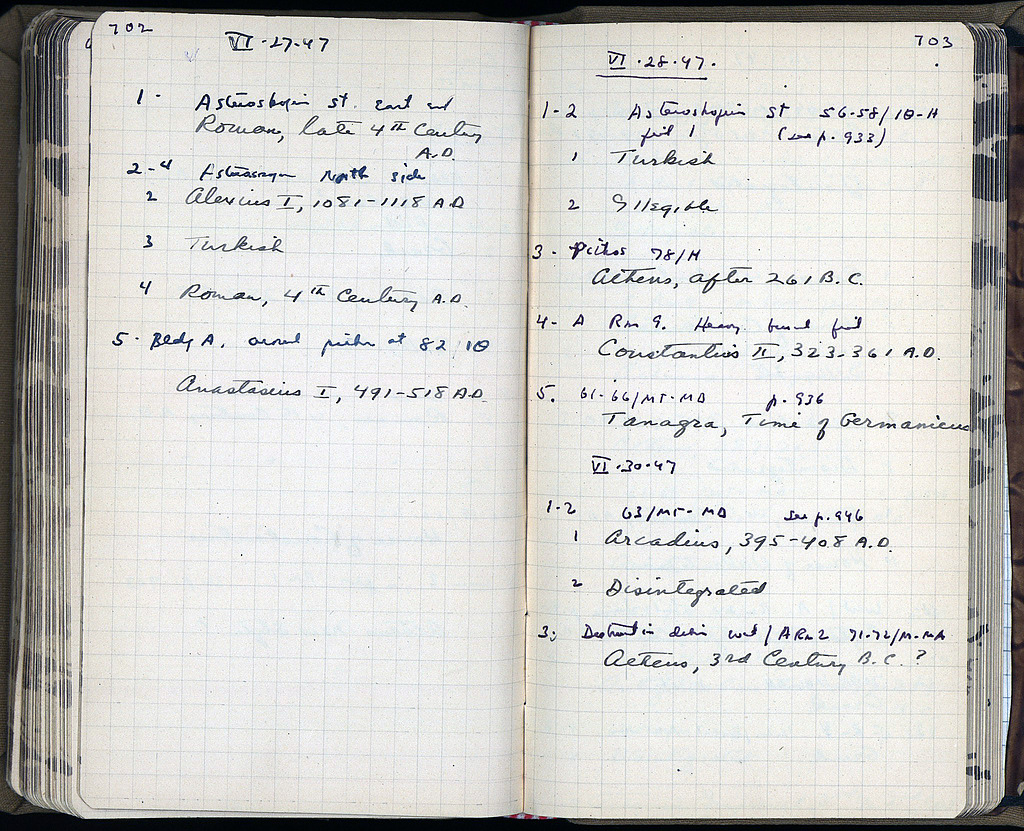 702
VI·27·47
1- Asteroskopin st. east end
Roman, late 4th Century
A.D.
2-4 North side
2 Alexius I, 1081-1118 A.D
3 Turkish
4 Roman, 4th Century A.D.
5. Bldg A, around pithos at 82/ΙΘ
Anastasius I, 491-518 A.D.
703
VI·28·47.
1-2 Asteroskopin st 56-58/ΙΘ-Η
fill 1 (see p. 933)
1 Turkish
2 Illegible
3- Pithos 78/Η
Athens, after 261 B.C.
4- A Rm 9. Heavy fill
Constantius II, 323-361 A.D.
5. 61-66/ΜΓ-ΜΔ p. 936
Tanagra, Time of Germanicus
VI·30·47
1-2 63/ΜΓ-ΜΔ See p. 946
1 Arcadius, 395-408 A.D.
2 Disintegrated
3; A Rm 2 71-72/
Athens, 3rd Century B.C.?